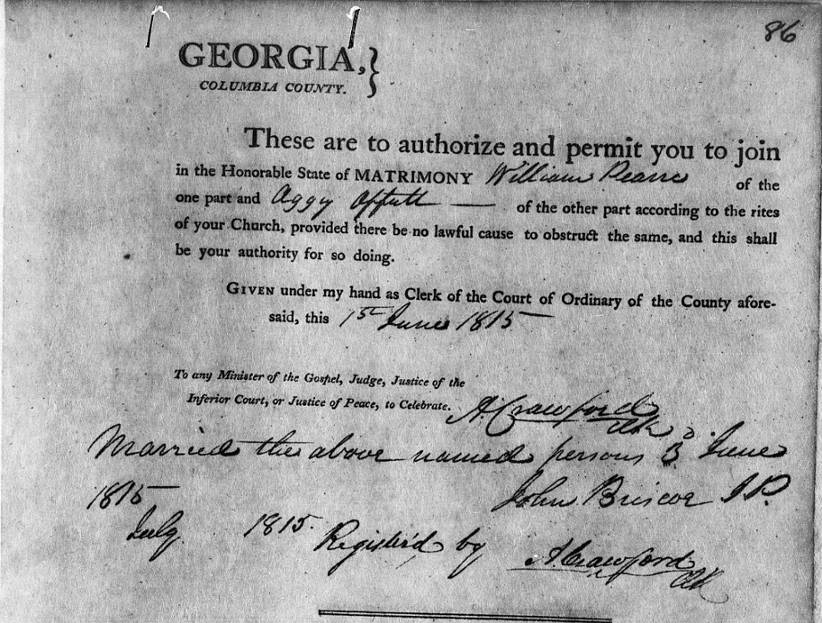 86
GEORGIA,}
COLUMBIA COUNTY.
These are to authorize and permit you to join
in the Honorable State of MATRIMONY William Pearre of the
one part and Aggy Offutt — of the other part according to the rites
of your Church, provided there be no lawful cause to obstruct the same, and this shall
be your authority for so doing.
GIVEN under my hand as Clerk of the Court of Ordinary of the County afore-
said, this 1st June 1815
To any Minister of the Gospel, Judge, Justice of the
Inferior Court, or Justice of Peace, to Celebrate. A. Crawford
Clk
Married the above named persons 3d June
1815 John Briscoe J.P.
July 1815. Registerd by A. Crawford
Clk